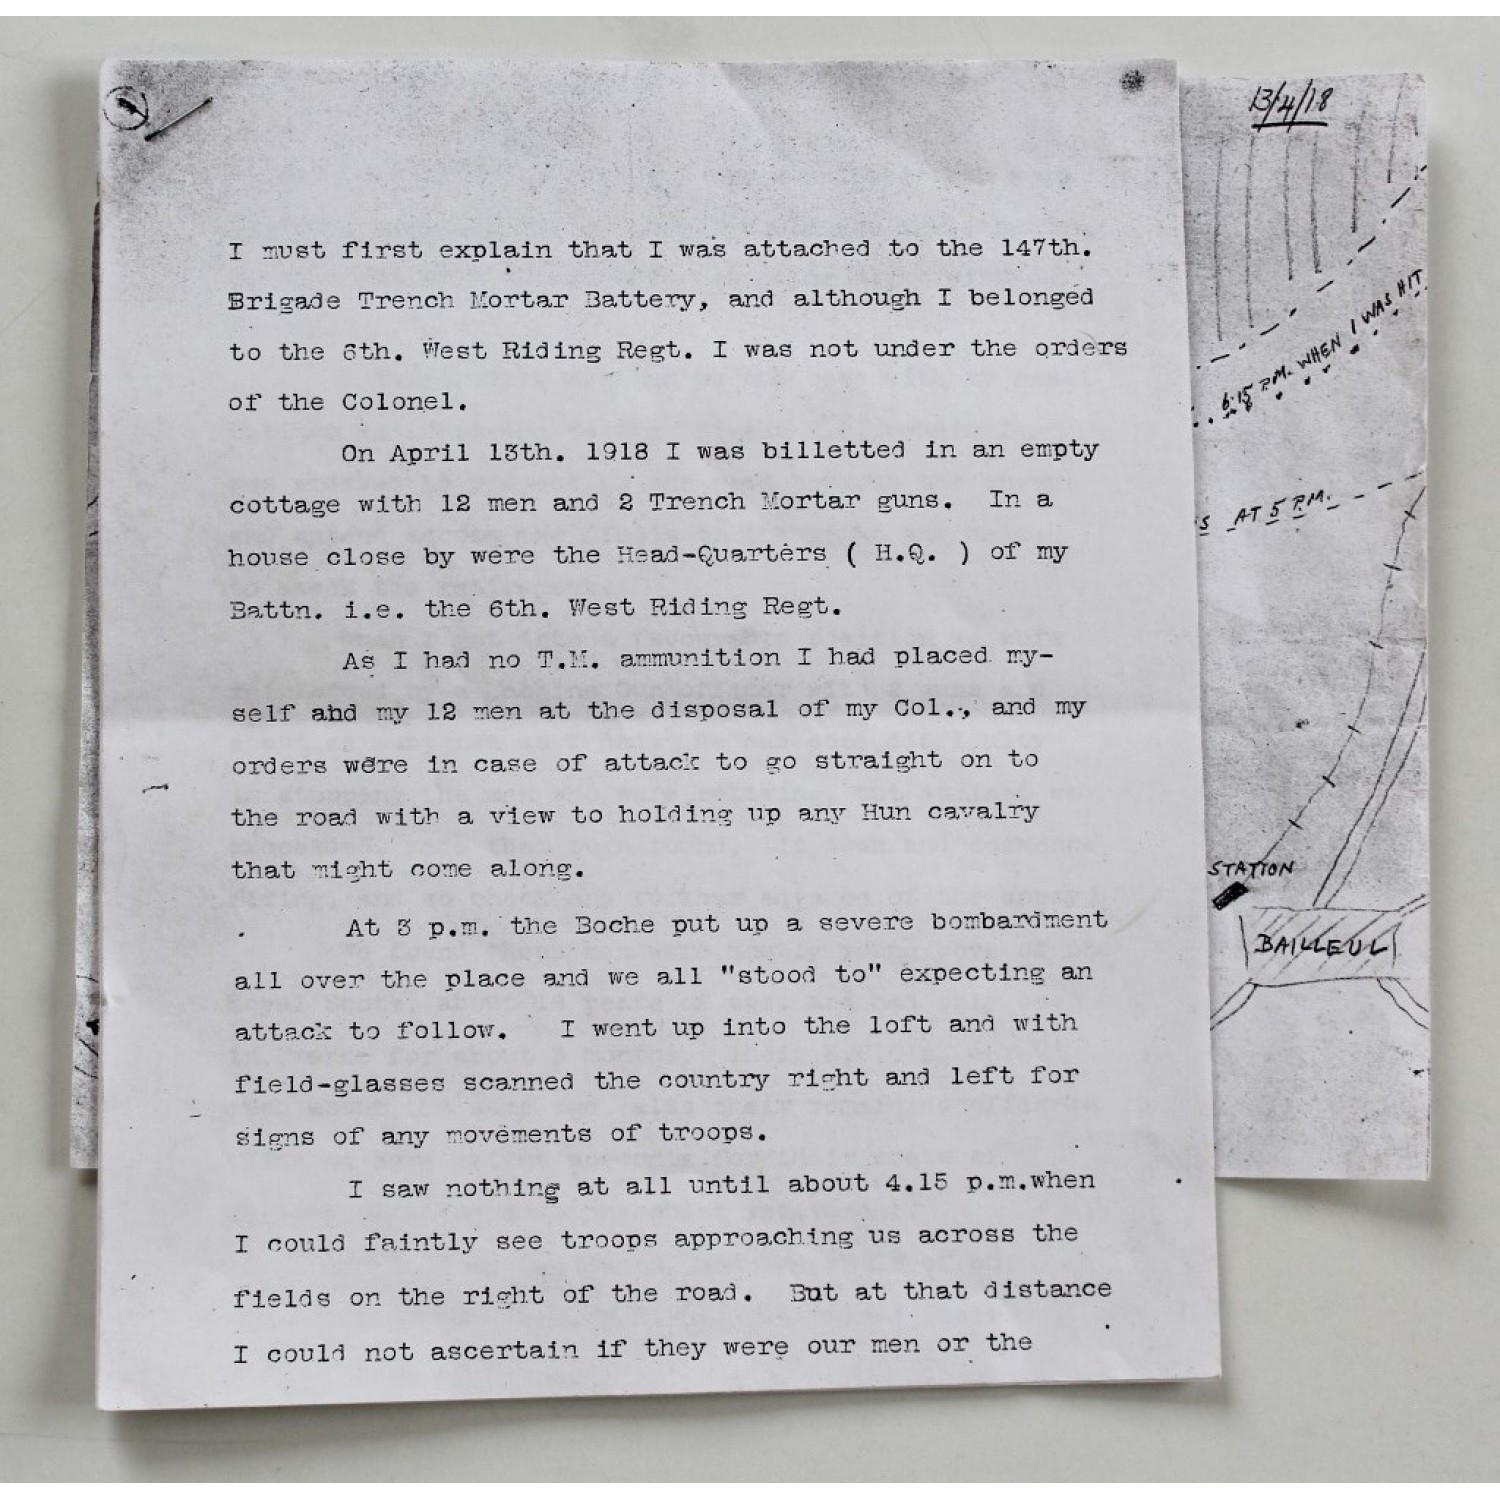 I must first explain that I was attached to the 147th.
Brigade Trench Mortar Battery, and although I belonged
to the 6th. West Riding Regt. I was not under the orders
of the Colonel.
On April 13th. 1918 I was billetted in an empty
cottage with 12 men and 2 Trench Mortar guns. In a
house close by were the Head-Quarters ( H.Q. ) of my
Battn. i.e. the 6th. West Riding Regt.
As I had no T.M. ammunition I had placed my-
self and my 12 men at the disposal of my Col., and my
orders were in case of attack to go straight on to
the road with a view to holding up any Hun cavalry
that might come along.
At 3 p.m. the Boche put up a severe bombardment
all over the place and we all "stood to" expecting an
attack to follow. I went up into the loft and with
field-glasses scanned the country right and left for
signs of any movements of troops.
I saw nothing at all until about 4.15 p.m.when
I could faintly see troops approaching us across the
fields on the right of the road. But at that distance
I could not ascertain if they were our men or the
13/4/18
6.15 P.M. WHEN I WAS HIT
S AT 5 P.M.
STATION
BAILLEUL